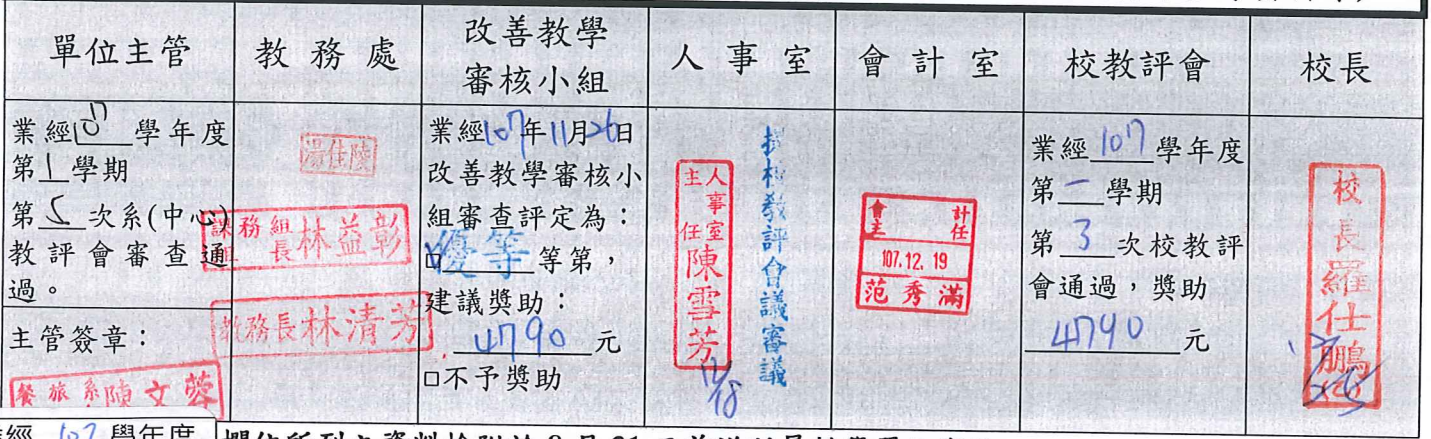 單位主管
教務處
改善教學
審核小組
人事室
會計室
校教評會
校長
業經107學年度
第1學期
第5次系(中心)
教評會審查通
過。
主管簽章：
餐旅系陳文蓉
湯佳陵
課務組
組長林益彰
教務長林清芳
業經107年11月26日
改善教學審核小
組審查評定為：
□優等等第，
建議獎助：
4790元
□不予獎助
人事室
主任
陳雪芳
12/18
提校教評會議審議
會計
主任
107.12.19
范秀滿
業經107學年度
第一學期
第3次校教評
會通過，獎助
4790元
校長羅仕鵬
經107學年度